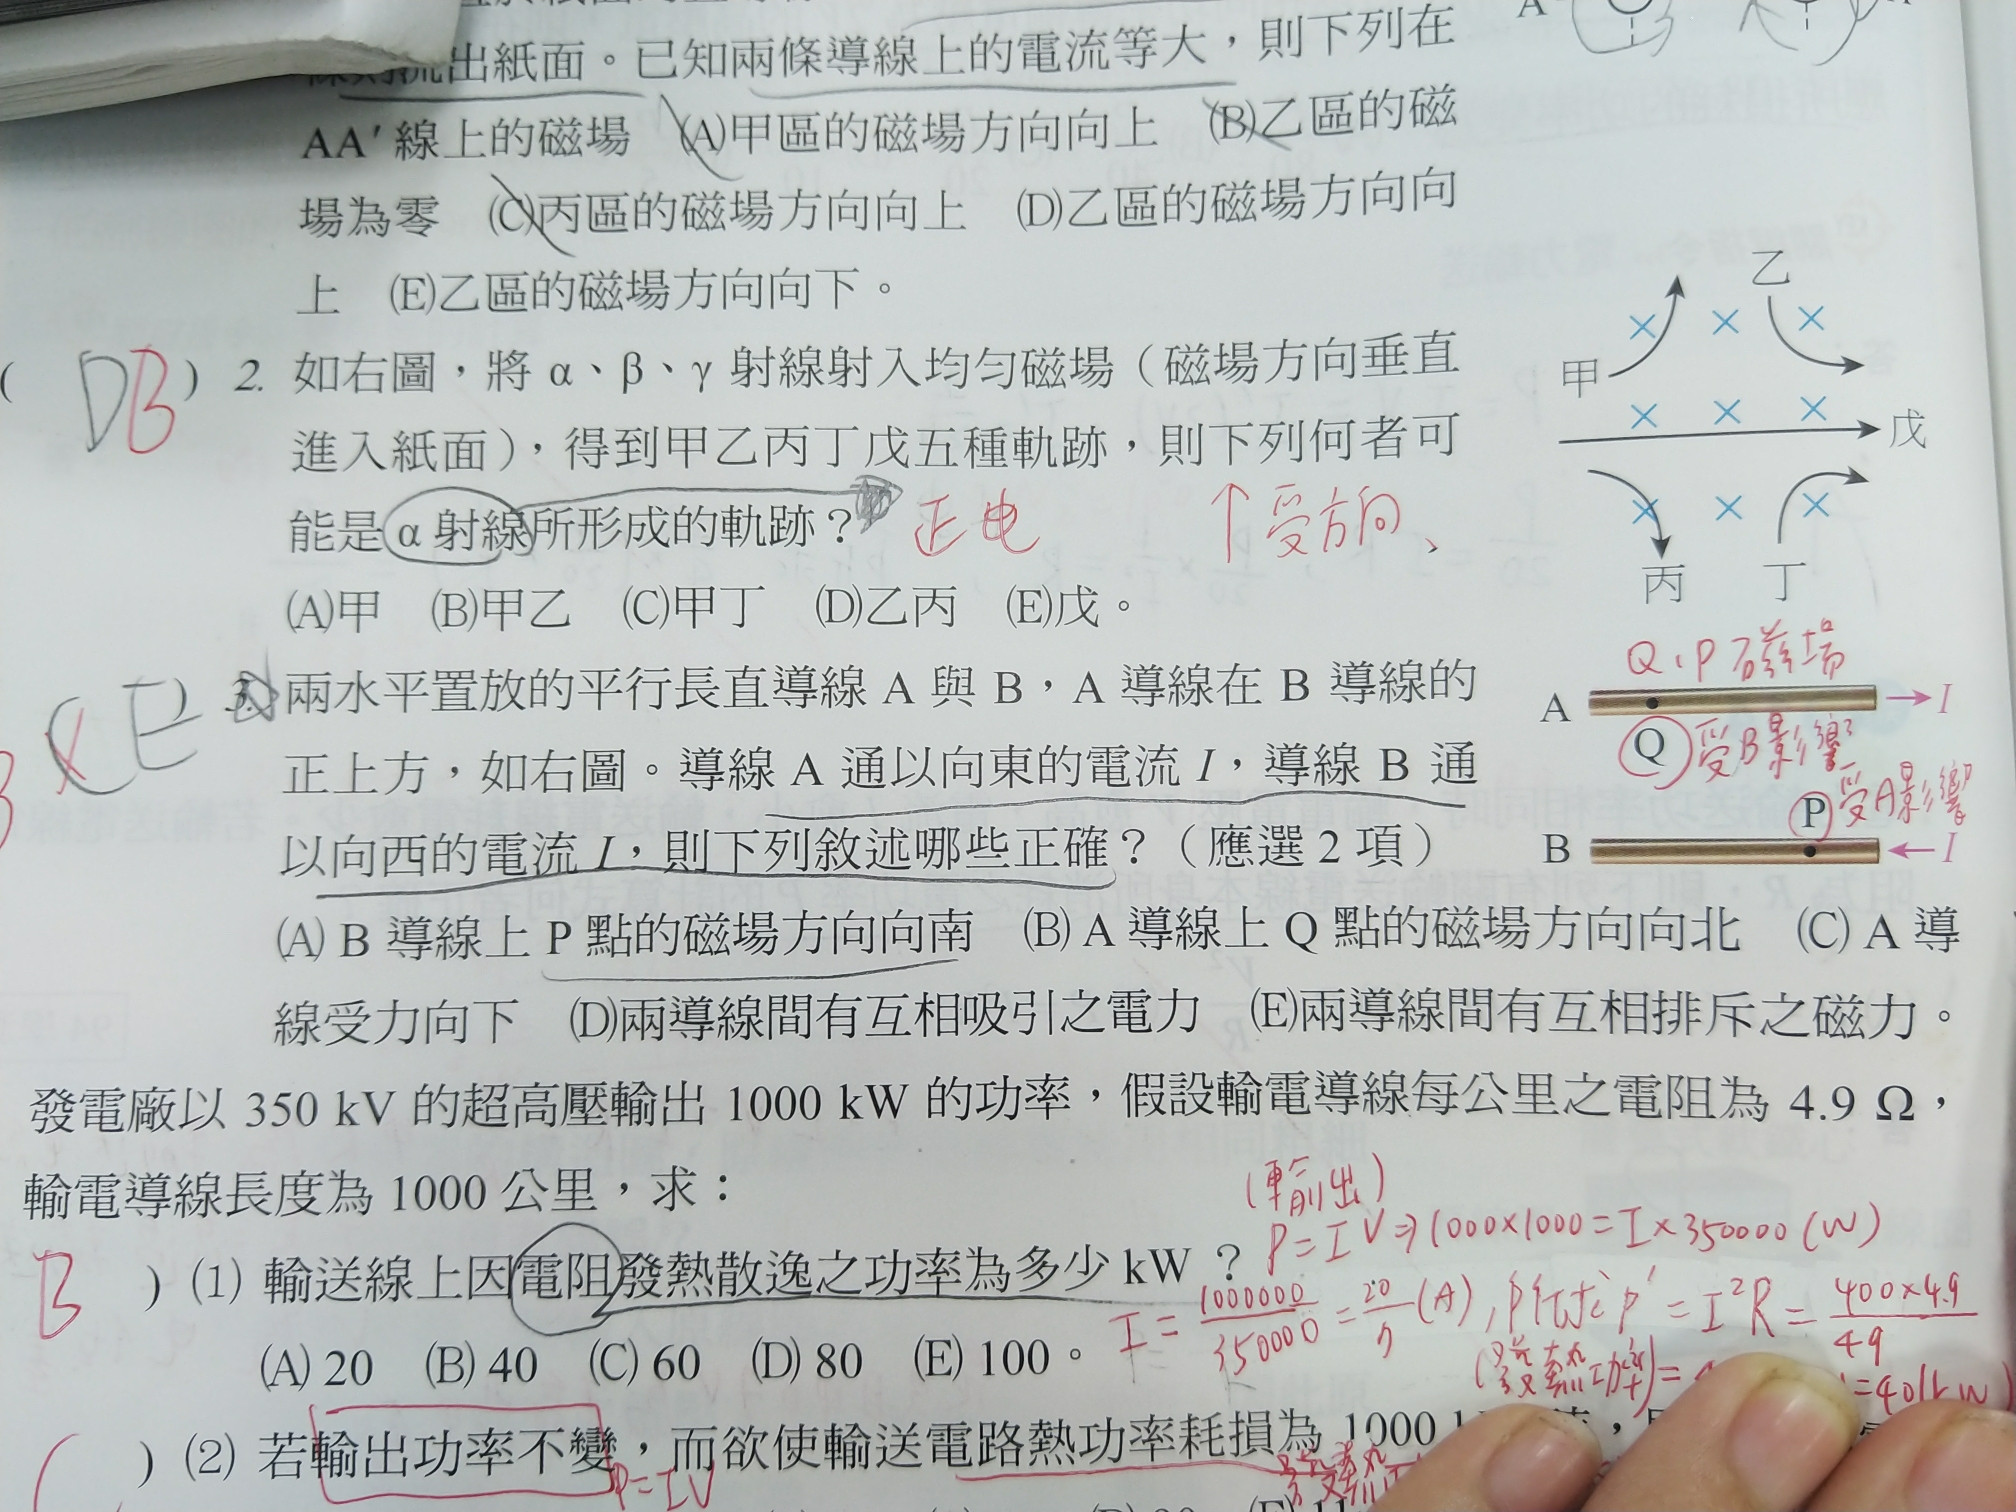 流出紙面。已知兩條導線上的電流等大，則下列在
AA′線上的磁場 (A)甲區的磁場方向向上 (B)乙區的磁
場為零 (C)丙區的磁場方向向上 (D)乙區的磁場方向向
上 (E)乙區的磁場方向向下。
( DB ) 2. 如右圖，將 α、β、γ 射線射入均勻磁場（磁場方向垂直
進入紙面），得到甲乙丙丁戊五種軌跡，則下列何者可
能是 α 射線所形成的軌跡？ 正电 ↑受方向、
(A)甲 (B)甲乙 (C)甲丁 (D)乙丙 (E)戊。
乙
甲
戊
丙 丁
E ) 3. 兩水平置放的平行長直導線 A 與 B，A 導線在 B 導線的
正上方，如右圖。導線 A 通以向東的電流 I，導線 B 通
以向西的電流 I，則下列敘述哪些正確？（應選 2 項）
(A) B 導線上 P 點的磁場方向向南 (B) A 導線上 Q 點的磁場方向向北 (C) A 導
線受力向下 (D)兩導線間有互相吸引之電力 (E)兩導線間有互相排斥之磁力。
Q、P 磁場
A I
Q 受B影響
P 受A影響
B I
發電廠以 350 kV 的超高壓輸出 1000 kW 的功率，假設輸電導線每公里之電阻為 4.9 Ω，
輸電導線長度為 1000 公里，求：
(輸出)
P=IV⇒1000×1000=I×350000(W)
B ) (1) 輸送線上因電阻發熱散逸之功率為多少 kW？
I=1000000/350000=20/7(A)，P'=I²R=400×4.9/49
(發熱功率)=
=40(kW)
(A) 20 (B) 40 (C) 60 (D) 80 (E) 100。
( ) (2) 若輸出功率不變，而欲使輸送電路熱功率耗損為 1000
P=IV
發熱